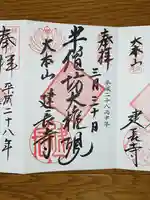 奉拝
大本山
建長寺
半僧坊大権現
三月三十日
平成二十八年
奉拝
大本山
建長寺
平成二十八年